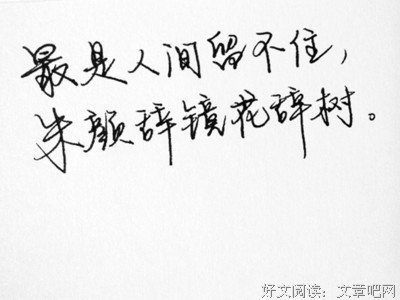 最是人间留不住，
朱颜辞镜花辞树。
好文阅读：文章吧网